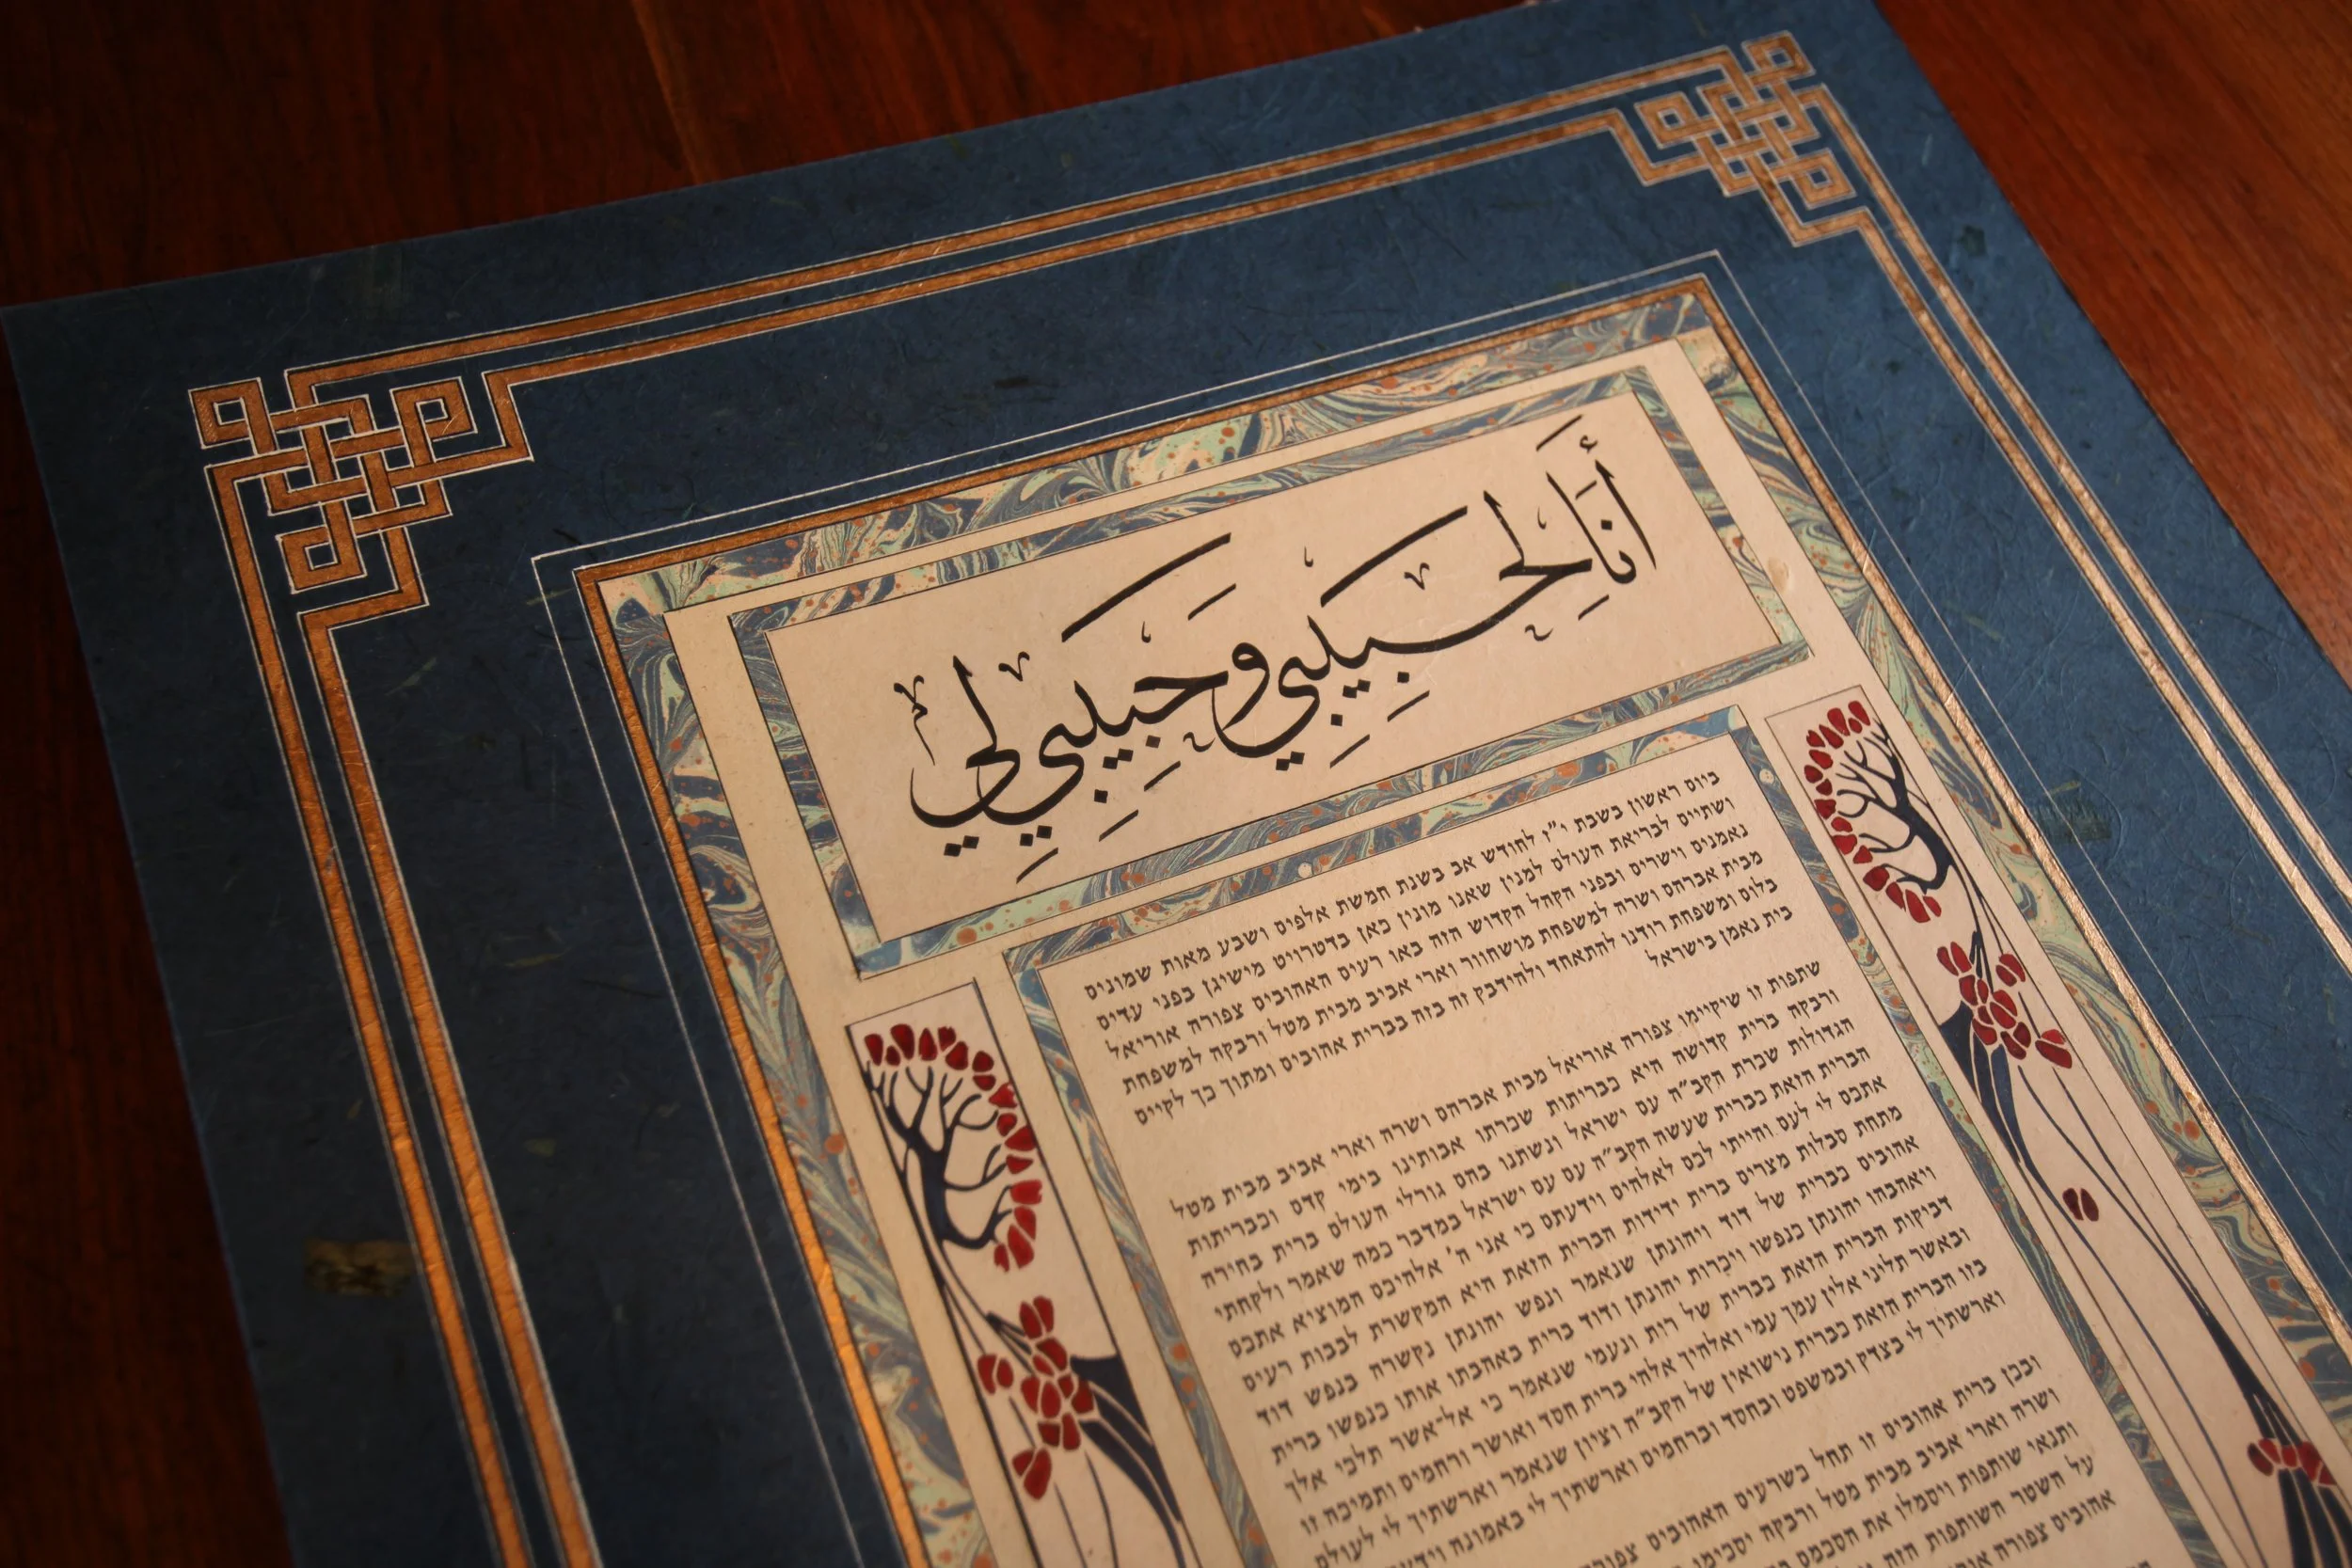 أَنَا لِحَبِيبِي وَحَبِيبِي لِي
ביום ראשון בשבת י״ז לחודש אב בשנת חמשת אלפים ושבע מאות שמונים
ושתיים לבריאת העולם למנין שאנו מונין כאן בדטרויט מישיגן בפני עדים
נאמנים וישרים ובפני הקהל הקדוש הזה באו רעים האהובים צפורה אוריאל
מבית אברהם ושרה למשפחת מושחוור וארי אביב מבית מטל ורבקה למשפחת
בלום ומשפחת רודנו להתאחד ולהידבק זה בזה בברית אהובים ומתוך כך לקיים
בית נאמן בישראל
שתפות זו שיקיימו צפורה אוריאל מבית אברהם ושרה וארי אביב מבית מטל
ורבקה ברית קדושה היא כבריתות שכרתו אבותינו בימי קדם וכבריתות
הגדולות שכרת הקב״ה עם ישראל ונשתנו בהם גורלי העולם ברית בחירה
הברית הזאת כברית שעשה הקב״ה עם עם ישראל במדבר כמה שאמר ולקחתי
אתכם לי לעם והייתי לכם לאלהים וידעתם כי אני ה׳ אלהיכם המוציא אתכם
מתחת סבלות מצרים ברית ידידות הברית הזאת היא המקשרת לבבות רעים
אהובים כברית של דוד ויהונתן שנאמר ונפש יהונתן נקשרה בנפש דוד
ויאהבהו יהונתן כנפשו ויכרות יהונתן ודוד ברית באהבתו אותו כנפשו ברית
דביקות הברית הזאת כברית של רות ונעמי שנאמר כי אל־אשר תלכי אלך
ובאשר תליני אלין עמך עמי ואלהיך אלהי ברית חסד ואושר ורחמים ותמיכה זו
בזו הברית הזאת כברית נישואין של הקב״ה וציון שנאמר וארשתיך לי לעולם
וארשתיך לי בצדק ובמשפט ובחסד וברחמים וארשתיך לי באמונה
ובכן ברית אהובים זו תחל כשרעים האהובים
ושרה וארי אביב מבית מטל ורבקה יסכימו
ותנאי שותפות ויסמלו את הסכמם
על השטר השותפות הזה
אהובים צפורה